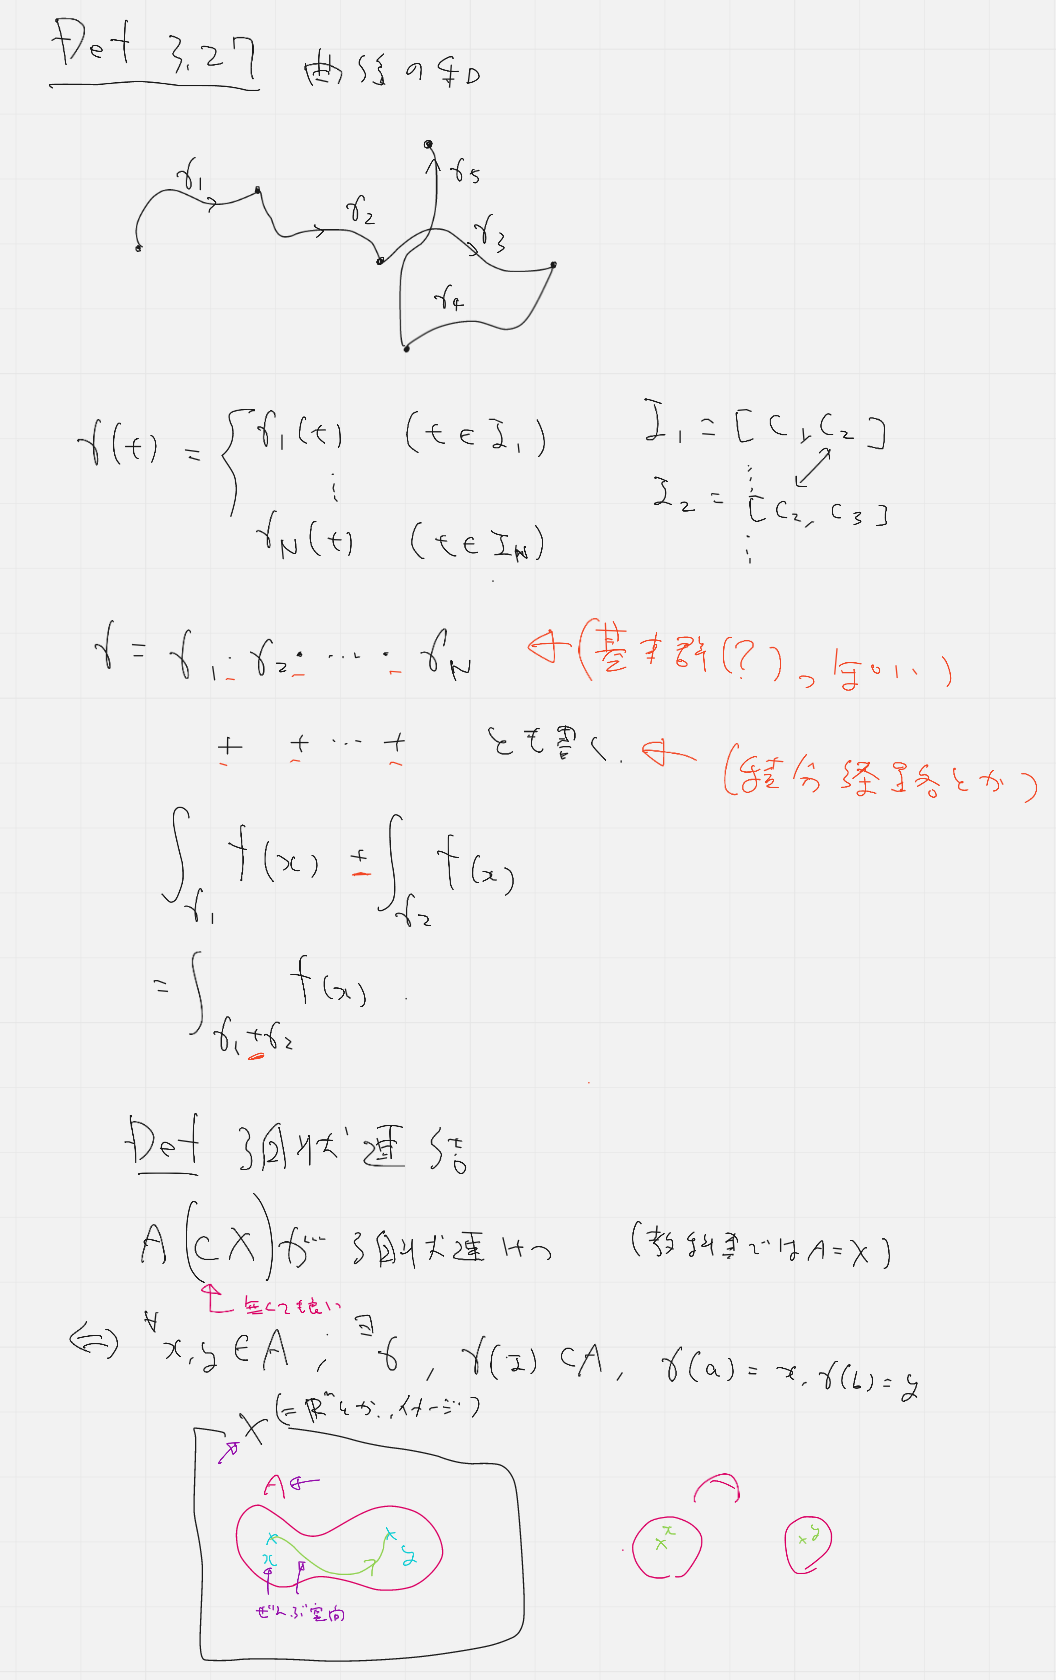 Def 3.27 曲線の和
γ1 γ2 γ3 γ4 γ5
γ(t) = { γ1(t) (t ∈ I1)
⋮
γN(t) (t ∈ IN)
I1 = [c1, c2]
⋮
I2 = [c2, c3]
⋮
γ = γ1 · γ2 · ⋯ · γN ← (基本群(?)っぽい)
+ + ⋯ + とも書く. ← (積分経路とか)
∫γ1 f(x) + ∫γ2 f(x)
= ∫γ1+γ2 f(x).
Def 弧状連結
A(⊂X)が 弧状連けつ (教科書では A=X)
↑ 無くても良い
⇔ ∀x,y ∈ A ; ∃γ, γ(I) ⊂ A, γ(a) = x, γ(b) = y
X (= ℝⁿとか.. イメージ)
A ←
x y
ぜんぶ空間
x y